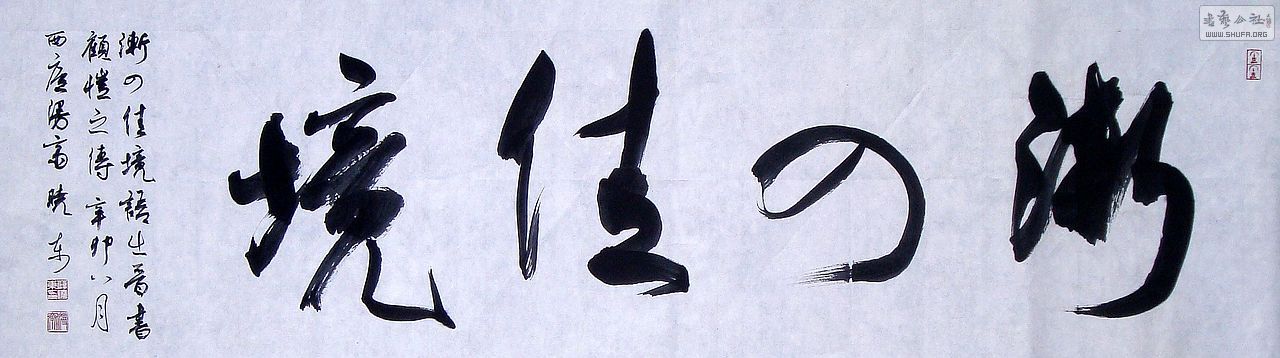 书藝公社
WWW.SHUFA.ORG
漸入佳境
漸入佳境語出晉書
顧愷之傳辛卯八月
西廬曉东